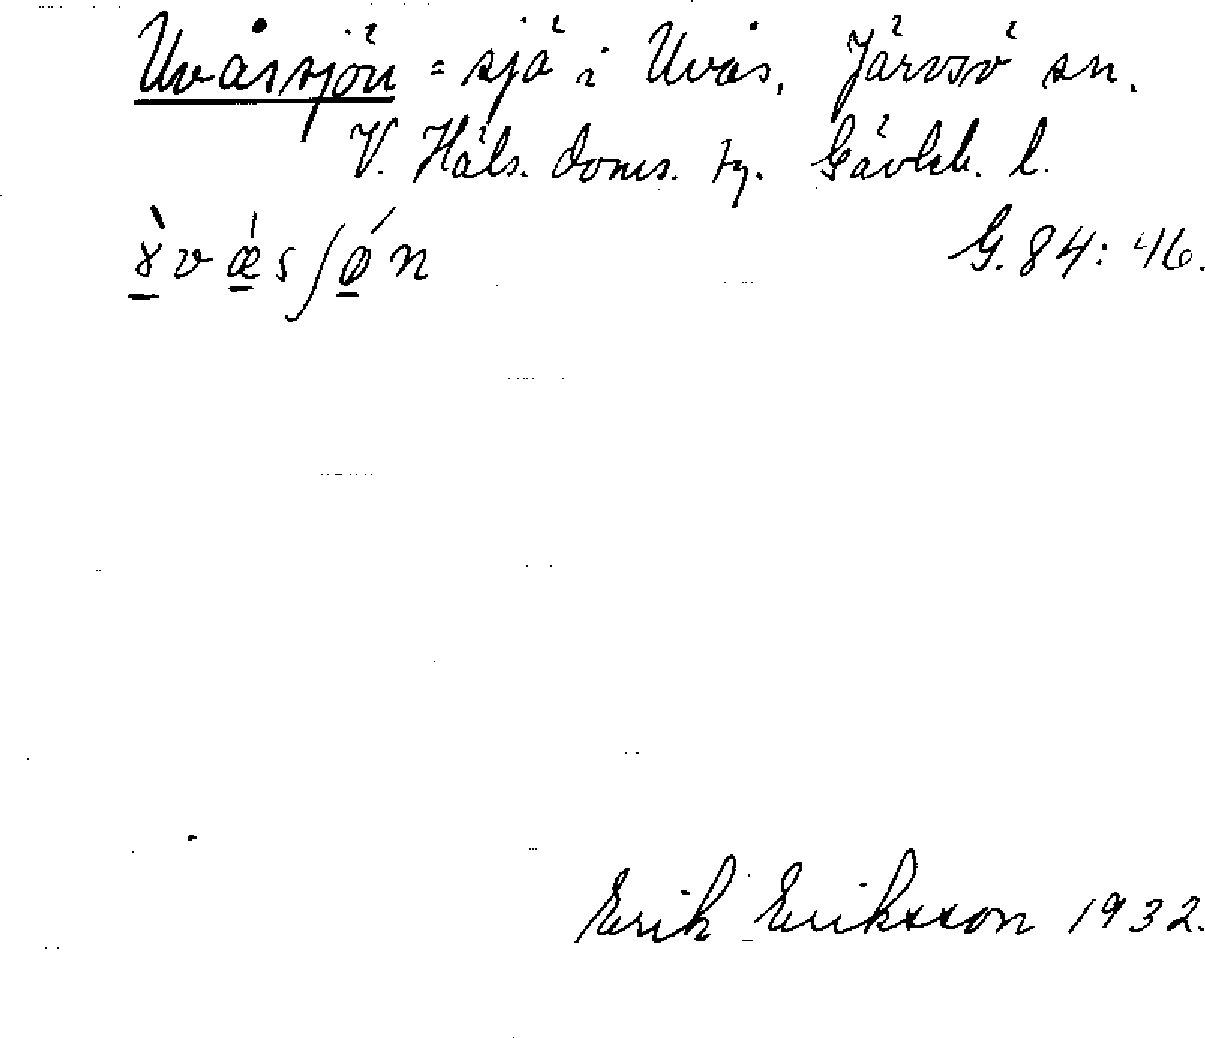 Uvåssjön = sjö i Uvås, Järvsö sn.
V. Häls. doms. tg. Gävleb. l.
G. 84: 46.
Erik Eriksson 1932.